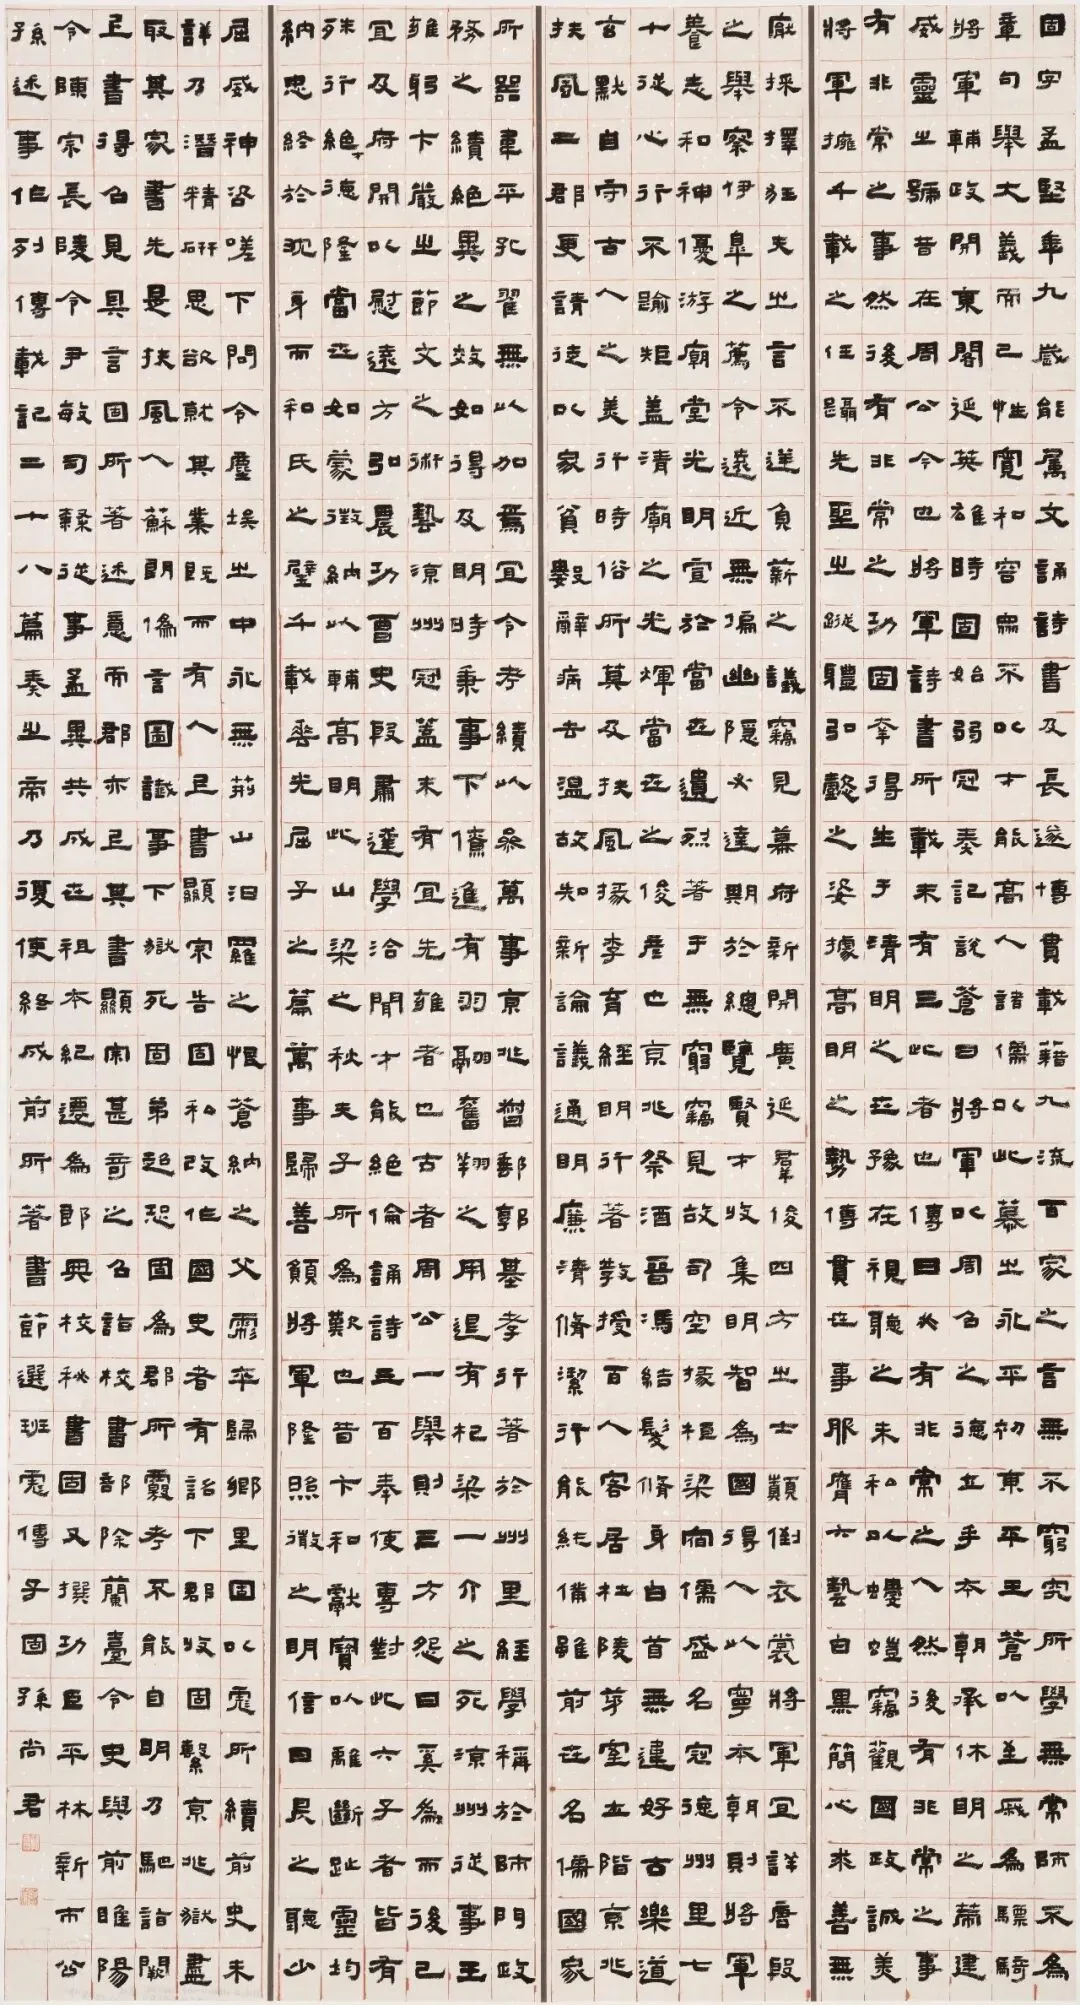 固字孟堅年九歲能属文誦詩書及長遂博貫載籍九流百家之言無不窮究所學無常師不為
章句舉大義而已性寬和容眾不以才能高人諸儒以此慕之永平初東平王蒼以至戚為驃騎
將軍輔政開東閤延英雄時固始弱冠奏記說蒼曰將軍以周召之德立乎本朝承休明之策建
威靈之號昔在周公今也將軍詩書所載未有三此者也傳曰必有非常之人然後有非常之事
有非常之事然後有非常之功固幸得生于清明之世豫在視聽之末私以螻螘竊觀國政誠美
將軍擁千載之任躡先聖之蹤體弘懿之姿據高明之勢博貫世事服膺六藝白黑簡心求善無
厭採擇狂夫之言不逆負薪之議竊見幕府新開廣延羣俊四方之士顛倒衣裳將軍宜詳唐殷
之舉察伊皋之薦令遠近無偏幽隱必達期於總覽賢才收集明智為國得人以寧本朝則將軍
養志和神優游廟堂光明宣於當世遺烈著于無窮竊見故司空掾桓梁宿儒盛名冠德州里七
十從心行不踰矩蓋清廟之光煇當世之俊彥也京兆祭酒晉馮結髮修身白首無違好古樂道
玄默自守古人之美行時俗所莫及扶風掾李育經明行著教授百人客居杜陵茅室土階京兆
扶風二郡更請徒以家貧數辭病去溫故知新論議通明廉清脩潔行能純備雖前世名儒國家
所器韋平孔翟無以加焉宜令考績以參萬事京兆督郵郭基孝行著於州里經學稱於師門政
務之績絕異之效如得及明時秉事下僚進有羽翮奮翔之用退有杞梁一介之死涼州從事王
雍躬卞嚴之節文之術藝涼州冠蓋未有宜先雍者也古者周公一舉則三方怨曰奚為而後己
宜及府開以慰遠方弘農功曹史殷肅達學洽聞才能絕倫誦詩三百奉使專對此六子者皆有
殊行絕才德隆當世如蒙徵納以輔高明此山梁之秋夫子所為歎也昔卞和獻寶以離斷趾靈均
納忠終於沈身而和氏之璧千載垂光屈子之篇萬事歸善願將軍隆照微之明信日昃之聽少
屈威神咨嗟下問令塵埃之中永無荊山汨羅之恨蒼納之父彪卒歸鄉里固以彪所續前史未
詳乃潛精研思欲就其業既而有人上書顯宗告固私改作國史者有詔下郡收固繫京兆獄盡
取其家書先是扶風人蘇朗偽言圖讖事下獄死固弟超恐固為郡所覈考不能自明乃馳詣闕
上書得召見具言固所著述意而郡亦上其書顯宗甚奇之召詣校書部除蘭臺令史與前睢陽
令陳宗長陵令尹敏司隸從事孟異共成世祖本紀遷為郎典校秘書固又撰功臣平林新市公
孫述事作列傳載記二十八篇奏之帝乃復使終成前所著書節選班彪傳子固孫尚君